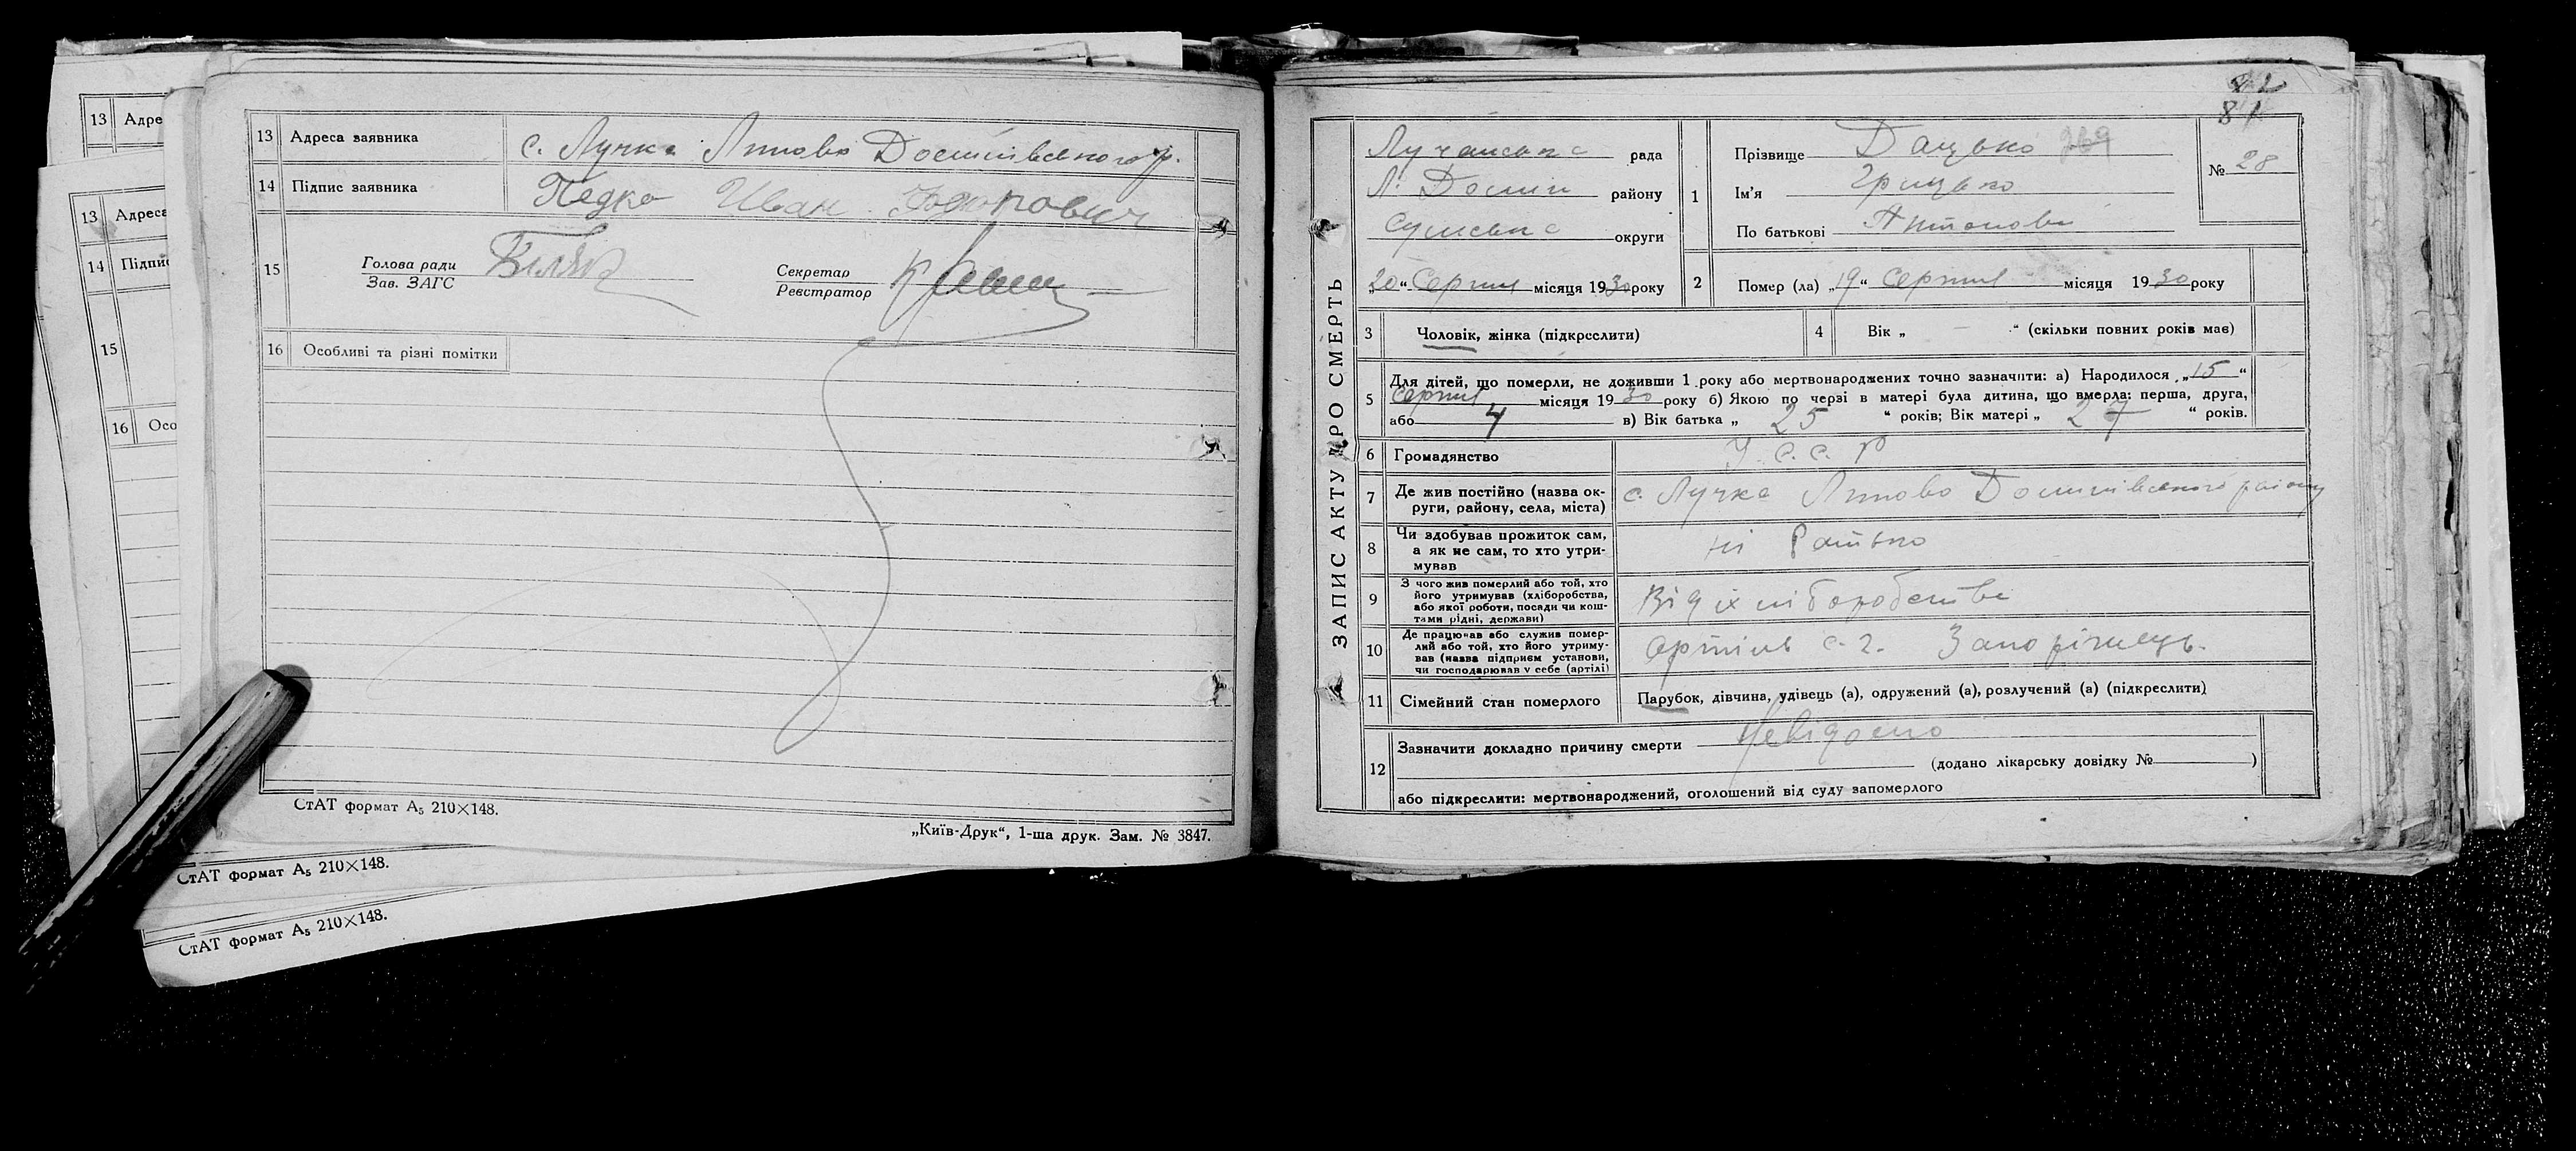 13 Адре
13 Адреса
14 Підпи
15
16 Осо
13 Адреса заявника с. Лучка Липово Долинівського р.
14 Підпис заявника Педко Иван
15 Голова ради
Зав. ЗАГС
Секретар
Реєстратор
16 Особливі та різні помітки
СтАТ формат А₅ 210×148.
„Київ-Друк“, 1-ша друк. Зам. № 3847.
СтАТ формат А₅ 210×148.
СтАТ формат А₅ 210×148.
82
81
ЗАПИС АКТУ ПРО СМЕРТЬ
Лучанська рада
Л. Долин району
Сумська округи
„20“ Серпня місяця 1930 року
1 Прізвище Дацько
Ім'я Грицько
По батькові Антонови
№ 28
2 Помер (ла) „19“ Серпня місяця 1930 року
3 Чоловік, жінка (підкреслити)
4 Вік „ — “ (скільки повних років має)
5 Для дітей, що померли, не доживши 1 року або мертвонароджених точно зазначити: а) Народилося „15“
Серпня місяця 1930 року б) Якою по черзі в матері була дитина, що вмерла: перша, друга,
або 4 в) Вік батька „ 25 “ років; Вік матері „ 27 “ років.
6 Громадянство У.С.С.Р
7 Де жив постійно (назва ок-
руги, району, села, міста) с. Лучка Липово Долинівського району
8 Чи здобував прожиток сам,
а як не сам, то хто утри-
мував ні Батько
9 З чого жив померлий або той, хто
його утримував (хліборобства,
або якої роботи, посади чи кош-
тами рідні, держави) Від хліборобства
10 Де працював або служив помер-
лий або той, хто його утриму-
вав (назва підприєм установи,
чи господарював у себе (артілі) Артіль с.г. Запоріжець.
11 Сімейний стан померлого Парубок, дівчина, удівець (а), одружений (а), розлучений (а) (підкреслити)
12 Зазначити докладно причину смерти Невідомо
(додано лікарську довідку № )
або підкреслити: мертвонароджений, оголошений від суду запомерлого